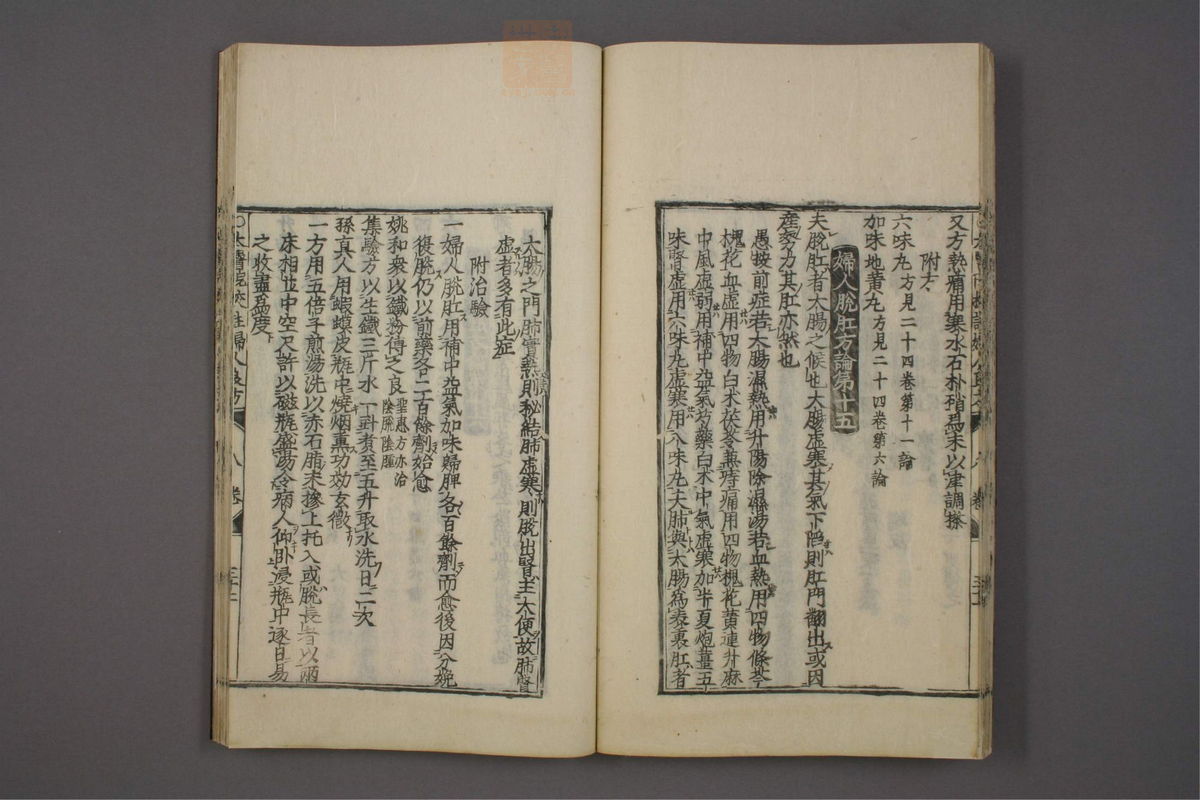 又方熱痛用寒水石朴硝爲末以津調搽
附方
六味丸方見二十四卷第十一論
加味地黄丸方見二十四卷第六論
婦人脫肛方論第十五
夫脫肛者大腸之候也大腸虛寒其氣下陷則肛門翻出或因
産努力其肛亦然也
愚按前症若大腸濕熱用升陽除濕湯若血熱用四物條芩
槐花血虛用四物白术茯苓兼痔痛用四物槐花黄連升麻
中風虛弱用補中益氣芍藥白术中氣虛寒加半夏炮薑五
味腎虛用六味丸虛寒用八味丸夫肺與大腸爲表裏肛者
大腸之門肺實熱則秘結肺虛寒則脫出腎主大便故肺腎
虛者多有此症
附治驗
一婦人脫肛用補中益氣加味歸脾各百餘劑而愈後因分娩
復脫仍以前藥各二百餘劑始愈
姚和衆以鐵粉傅之良聖惠方亦治陰脫陰腫
集驗方以生鐵三斤水一斗煮至五升取水洗日二次
孫真人用蝦蟆皮瓶中燒烟熏功效玄微
一方用五倍子煎湯洗以赤石脂末摻上托入或脫長者以兩
床相並中空尺許以磁瓶盛湯令病人仰卧浸瓶中逐日易
之收盡爲度